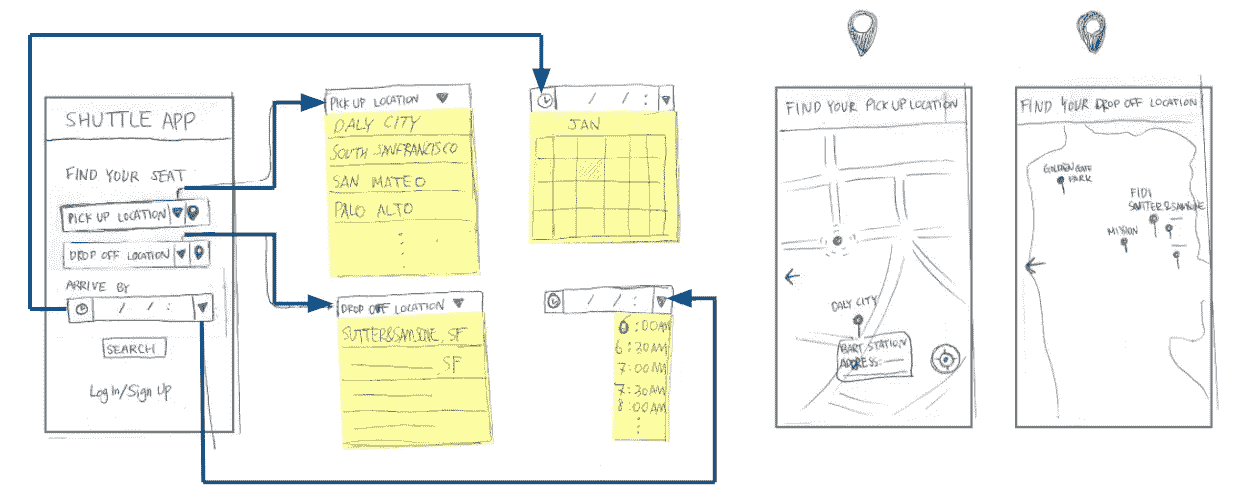 SHUTTLE APP
FIND YOUR SEAT
PICK UP LOCATION
DROP OFF LOCATION
ARRIVE BY
/ / :
SEARCH
Log In/Sign Up
PICK UP LOCATION
DALY CITY
SOUTH SANFRANCISCO
SAN MATEO
PALO ALTO
DROP OFF LOCATION
SUTTER&SANSOME, SF
SF
/ / :
JAN
/ / :
6:00AM
6:30AM
7:00AM
7:30AM
8:00AM
FIND YOUR PICK UP LOCATION
DALY CITY
BART STATION
ADDRESS:
FIND YOUR DROP OFF LOCATION
GOLDEN GATE
PARK
FIDI
SUTTER&SANSOME
MISSION